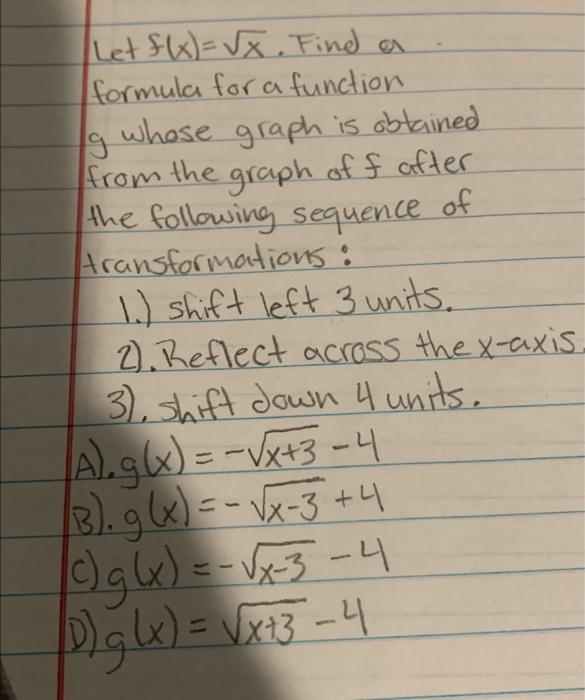 Let f(x)=√x. Find a
formula for a function
g whose graph is obtained
from the graph of f after
the following sequence of
transformations:
1.) shift left 3 units.
2). Reflect across the x-axis.
3). shift down 4 units.
A). g(x) = -√x+3 - 4
B). g(x) = - √x-3 + 4
C) g(x) = -√x-3 - 4
D) g(x) = √x+3 - 4